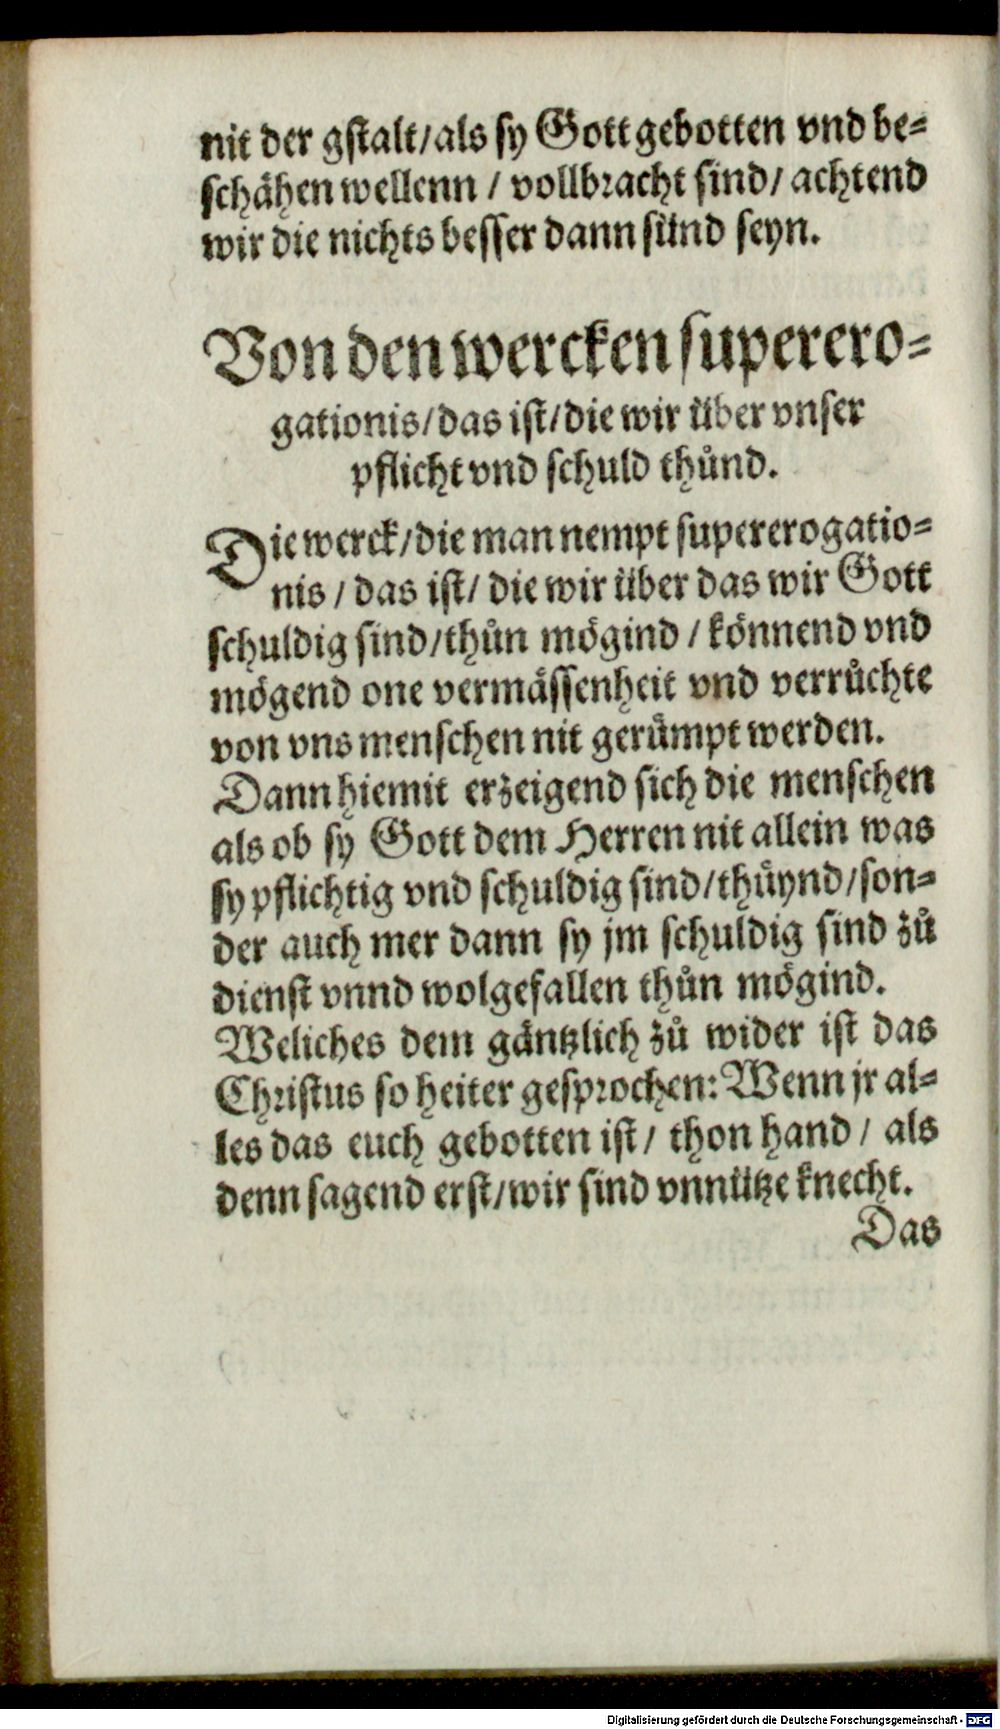 nit der gstalt/als sy Gott gebotten vnd be⸗
schaͤhen wellenn / vollbracht sind/ achtend
wir die nichts besser dann sünd seyn.
Von den wercken superero⸗
gationis/das ist/die wir über vnser
pflicht vnd schuld thuͦnd.
Die werck/die man nempt supererogatio⸗
nis / das ist/ die wir über das wir Gott
schuldig sind/thuͦn moͤgind / koͤnnend vnd
moͤgend one vermaͤssenheit vnd verruͦchte
von vns menschen nit geruͤmpt werden.
Dann hiemit erzeigend sich die menschen
als ob sy Gott dem Herren nit allein was
sy pflichtig vnd schuldig sind/thuͤynd/son⸗
der auch mer dann sy jm schuldig sind zuͦ
dienst vnnd wolgefallen thuͦn moͤgind.
Weliches dem gaͤntzlich zuͦ wider ist das
Christus so heiter gesprochen: Wenn jr al⸗
les das euch gebotten ist/ thon hand / als
denn sagend erst/wir sind vnnütze knecht.
Das
Digitalisierung gefördert durch die Deutsche Forschungsgemeinschaft - DFG